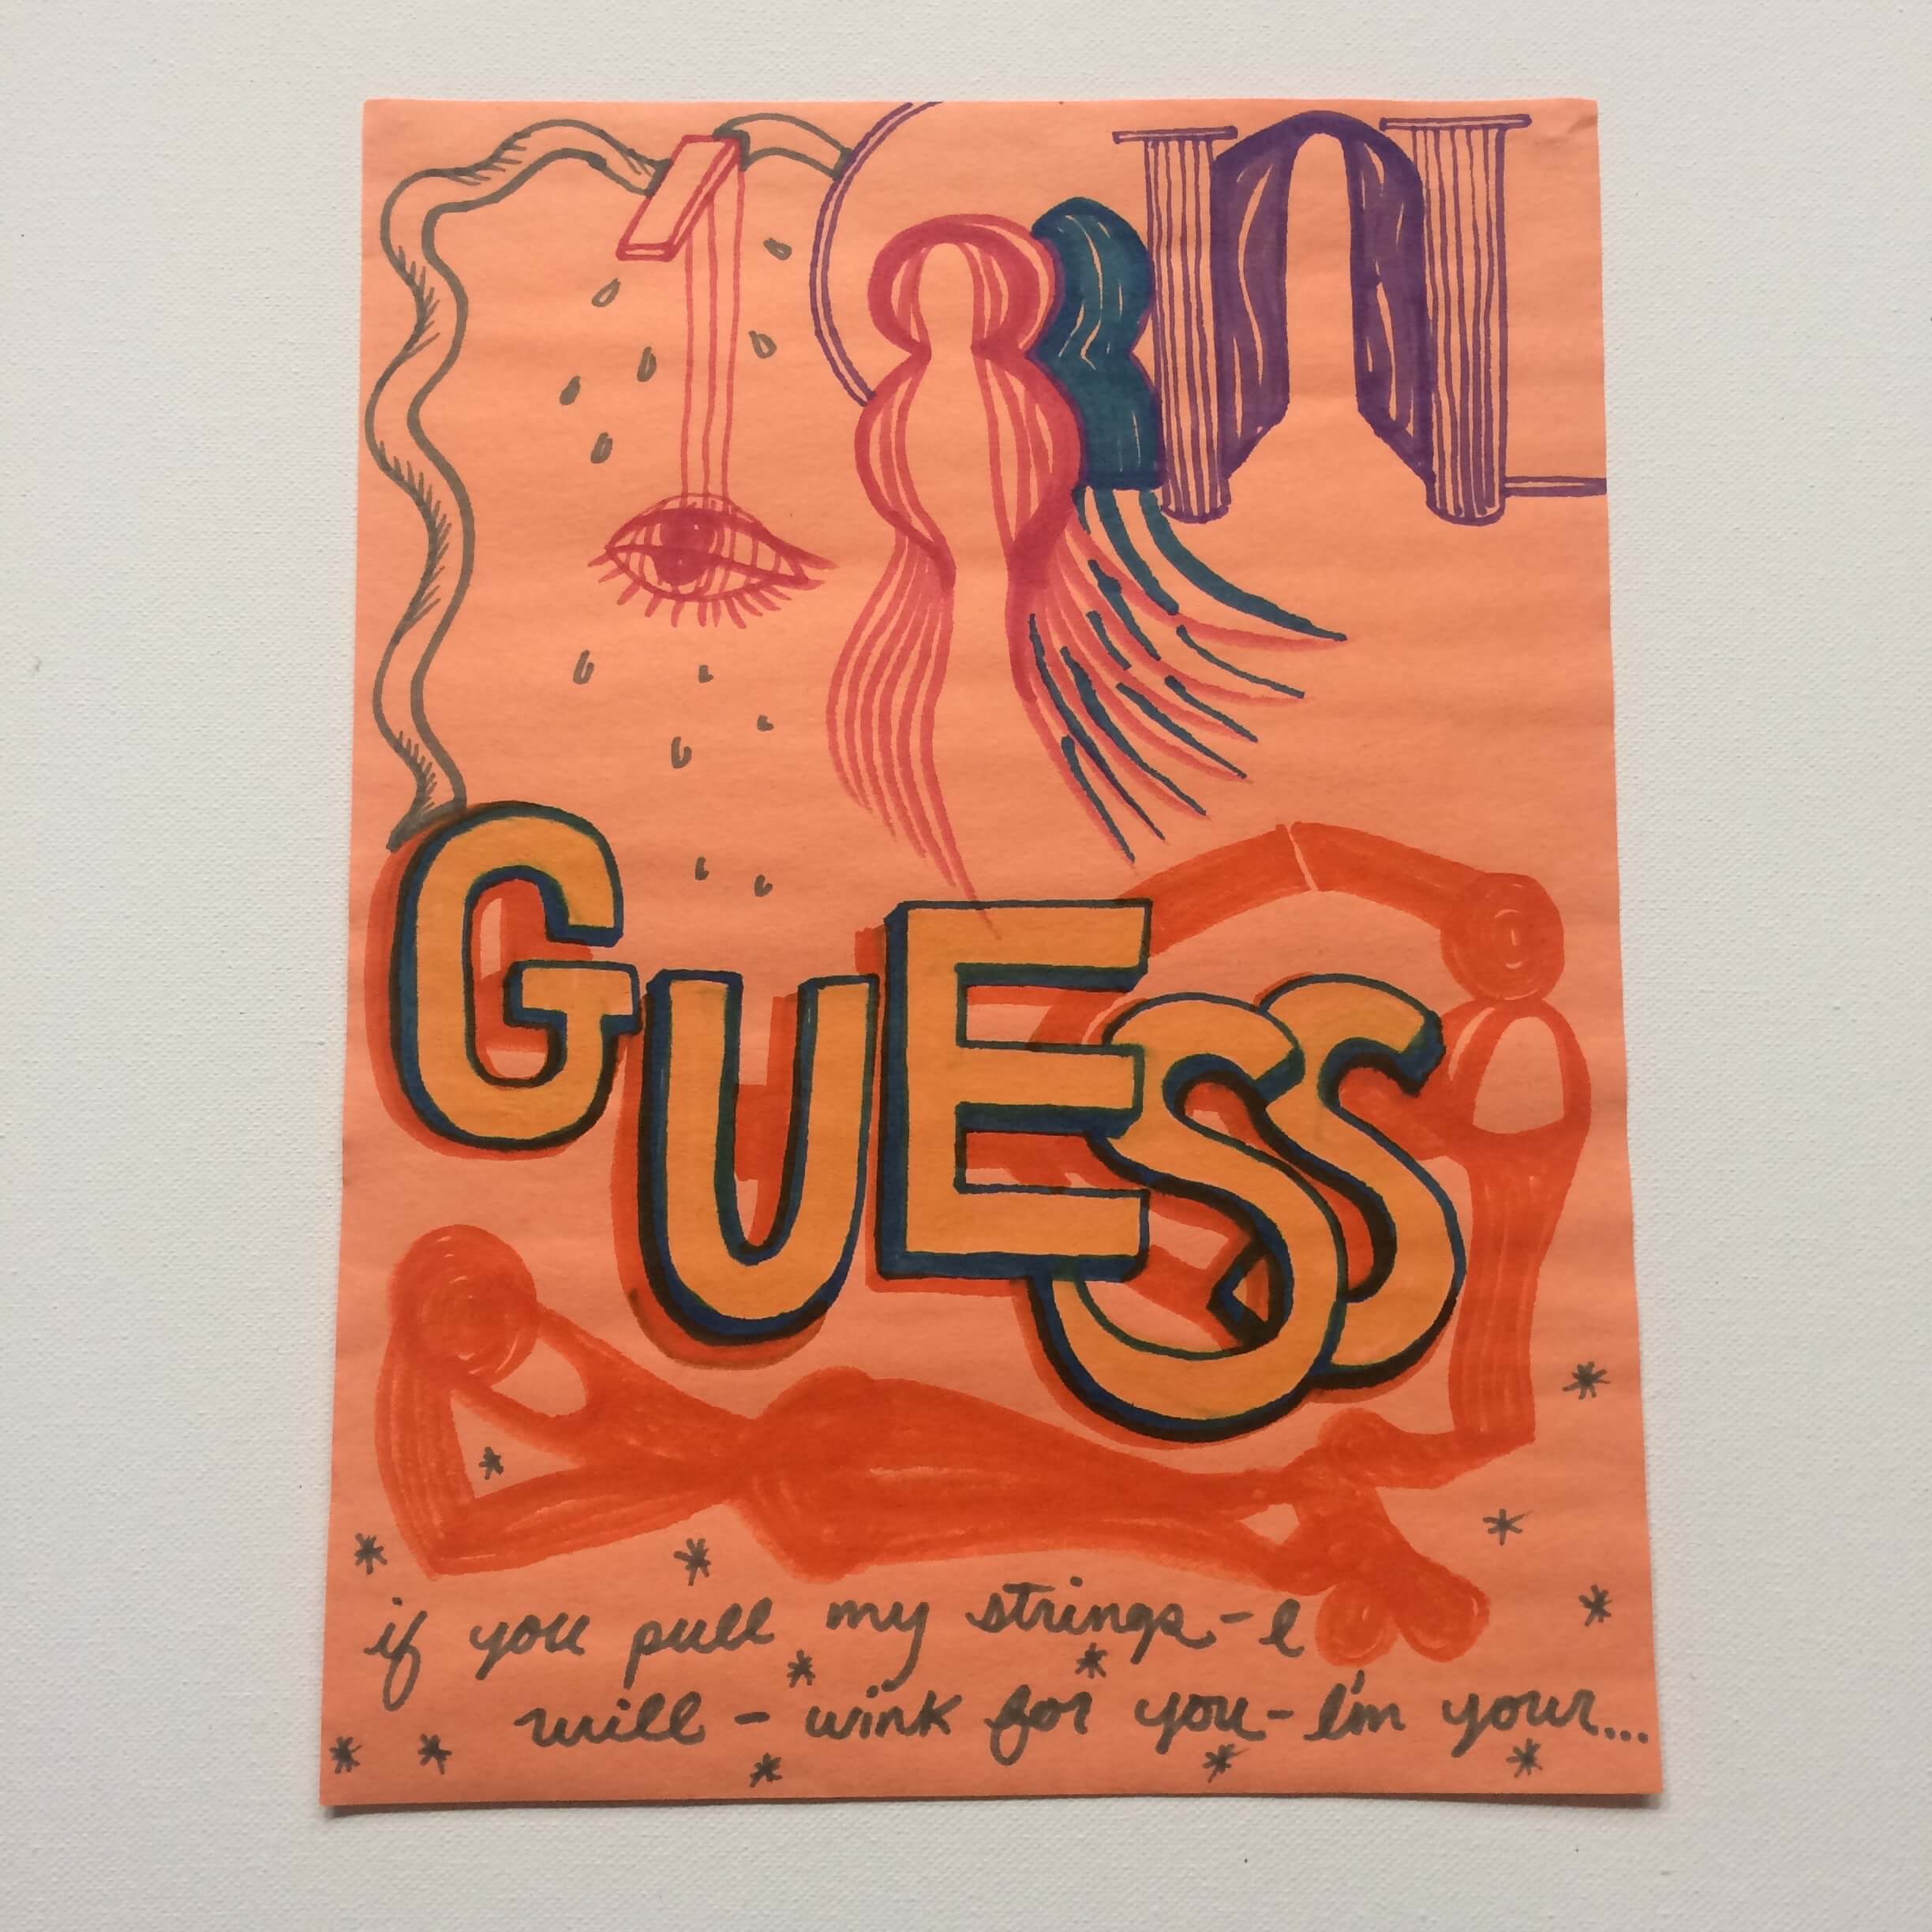 GUESS
if you pull my strings - I
will - wink for you - I'm your...